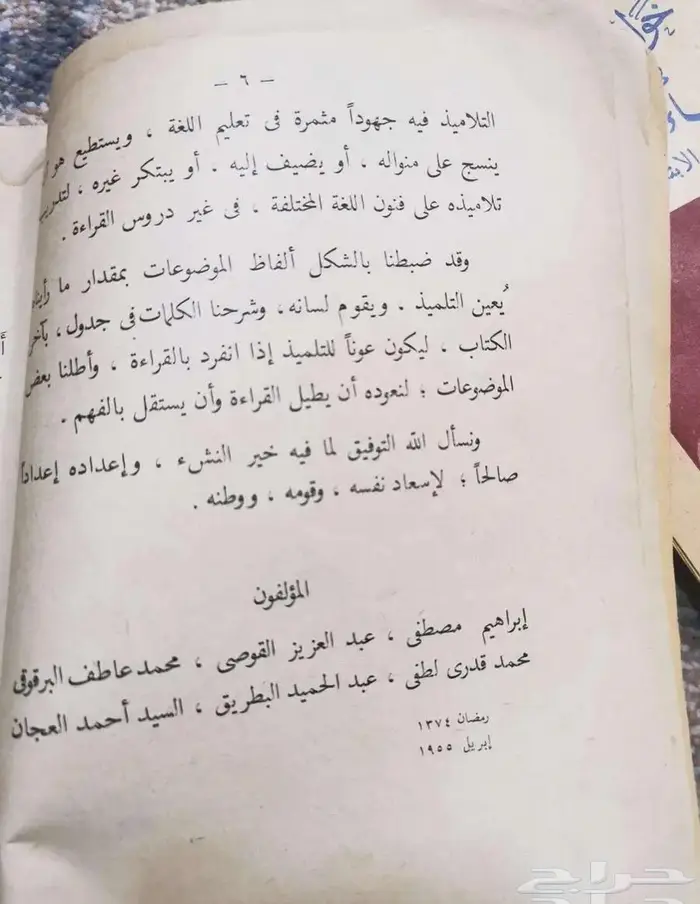 — ٦ —
التلاميذ فيه جهوداً مثمرة فى تعليم اللغة ، ويستطيع هو
ينسج على منواله ، أو يضيف إليه . أو يبتكر غيره ، لتدريب
تلاميذه على فنون اللغة المختلفة ، فى غير دروس القراءة .
وقد ضبطنا بالشكل ألفاظ الموضوعات بمقدار ما رأيناه
يُعين التلميذ . ويقوم لسانه ، وشرحنا الكلمات فى جدول ، بآخر
الكتاب . ليكون عوناً للتلميذ إذا انفرد بالقراءة ، وأطلنا بعض
الموضوعات ؛ لنعوده أن يطيل القراءة وأن يستقل بالفهم .
ونسأل الله التوفيق لما فيه خير النشء ، وإعداده إعداداً
صالحاً ؛ لإسعاد نفسه ، وقومه ، ووطنه .
المؤلفون
إبراهيم مصطفى ، عبد العزيز القوصى ، محمد عاطف البرقوقى
محمد قدرى لطفى ، عبد الحميد البطريق ، السيد أحمد العجان
رمضان ١٣٧٤
إبريل ١٩٥٥
حراج